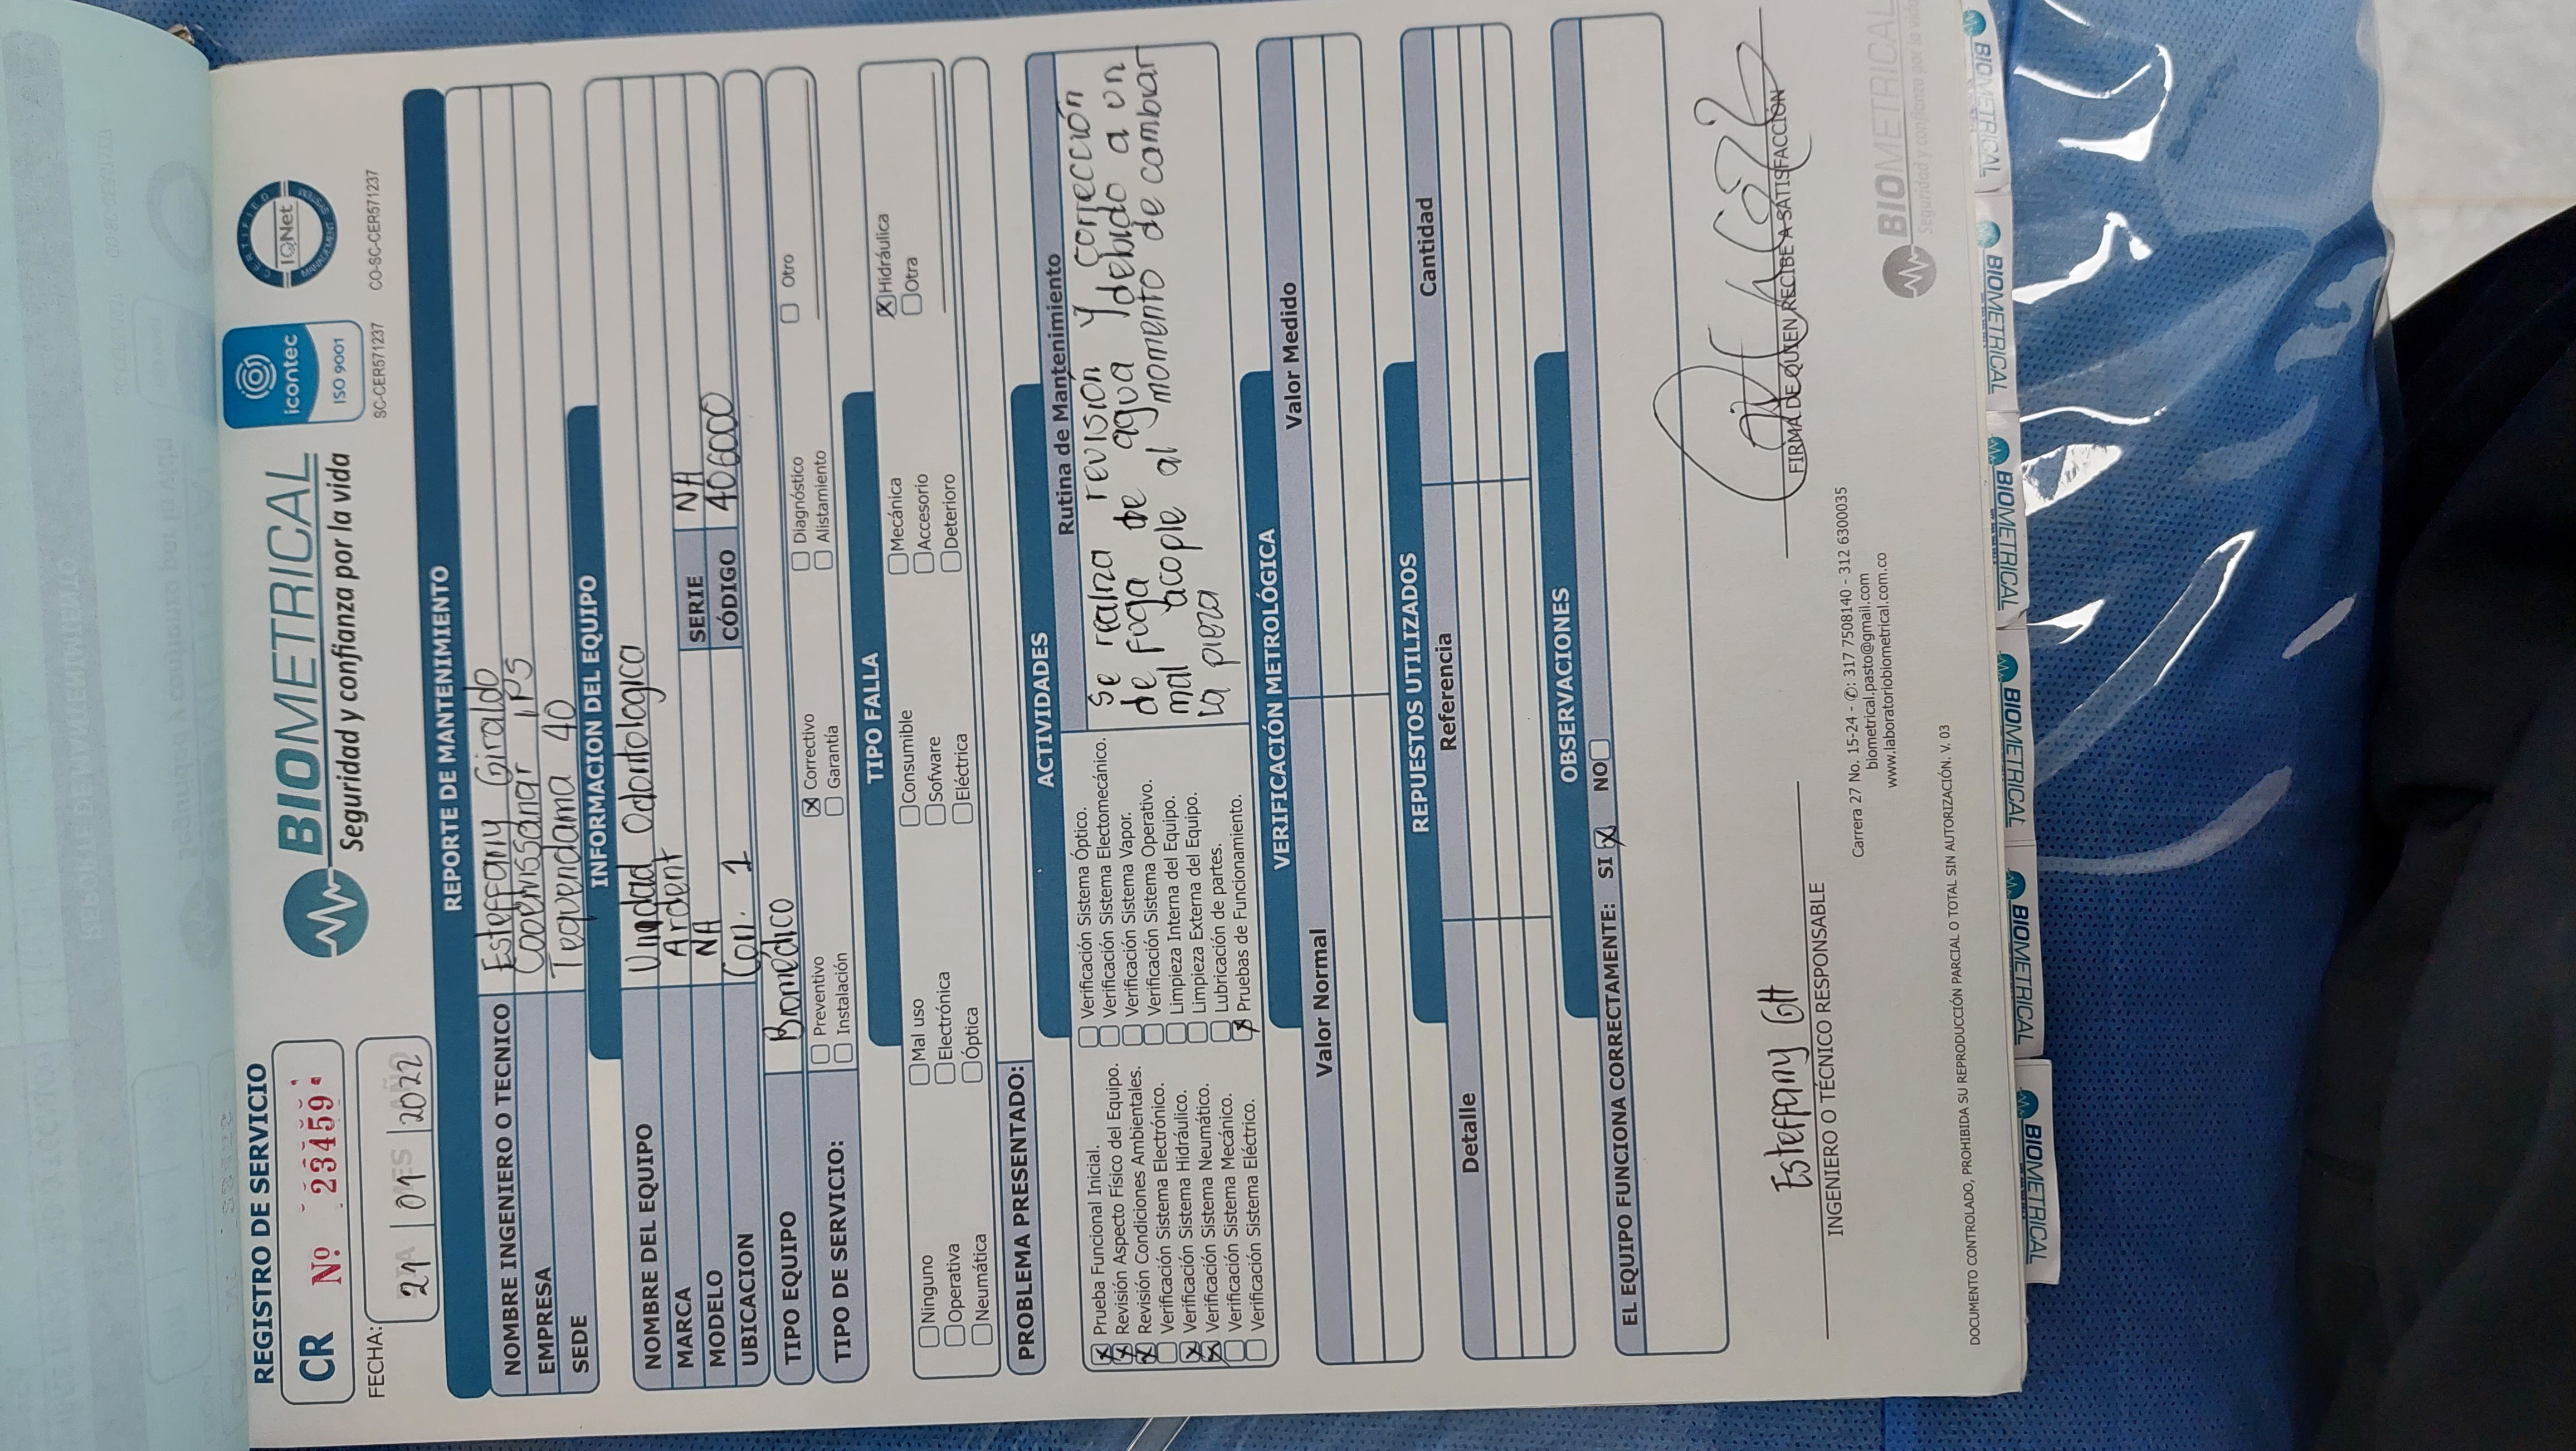 REGISTRO DE SERVICIO
CR Nº 23459
BIOMETRICAL
Seguridad y confianza por la vida
icontec
ISO 9001
SC-CER571237
CERTIFIED
IQNet
MANAGEMENT SYSTEM
CO-SC-CER571237
FECHA: 21 | 01 | 2022
REPORTE DE MANTENIMIENTO
NOMBRE INGENIERO O TECNICO Esteffany Giraldo
EMPRESA Cooemssanar IPS
SEDE Tequendama 40
INFORMACION DEL EQUIPO
NOMBRE DEL EQUIPO Unidad Odontologica
MARCA Ardent
MODELO NA SERIE NA
UBICACION Con. 1 CÓDIGO 406000
TIPO EQUIPO Biomédico
TIPO DE SERVICIO:
Preventivo Correctivo Diagnóstico Otro
Instalación Garantía Alistamiento
TIPO FALLA
Ninguno Mal uso Consumible Mecánica Hidráulica
Operativa Electrónica Sofware Accesorio Otra
Neumática Óptica Eléctrica Deterioro
PROBLEMA PRESENTADO:
ACTIVIDADES
Prueba Funcional Inicial.
Revisión Aspecto Físico del Equipo.
Revisión Condiciones Ambientales.
Verificación Sistema Electrónico.
Verificación Sistema Hidráulico.
Verificación Sistema Neumático.
Verificación Sistema Mecánico.
Verificación Sistema Eléctrico.
Verificación Sistema Óptico.
Verificación Sistema Electomecánico.
Verificación Sistema Vapor.
Verificación Sistema Operativo.
Limpieza Interna del Equipo.
Limpieza Externa del Equipo.
Lubricación de partes.
Pruebas de Funcionamiento.
Rutina de Mantenimiento
Se realiza revisión y corrección
de foga de agua debido a un
mal acople al momento de cambiar
La pieza
VERIFICACIÓN METROLÓGICA
Valor Normal Valor Medido
REPUESTOS UTILIZADOS
Detalle Referencia Cantidad
OBSERVACIONES
EL EQUIPO FUNCIONA CORRECTAMENTE: SI NO
Esteffany GH
INGENIERO O TÉCNICO RESPONSABLE
FIRMA DE QUIEN RECIBE A SATISFACCIÓN
Carrera 27 No. 15-24 - ✆: 317 7508140 - 312 6300035
biometrical.pasto@gmail.com
www.laboratoriobiometrical.com.co
BIOMETRICAL
Seguridad y confianza por la vida
DOCUMENTO CONTROLADO, PROHIBIDA SU REPRODUCCIÓN PARCIAL O TOTAL SIN AUTORIZACIÓN. V. 03
BIOMETRICAL
BIOMETRICAL
BIOMETRICAL
BIOMETRICAL
BIOMETRICAL
BIOMETRICAL